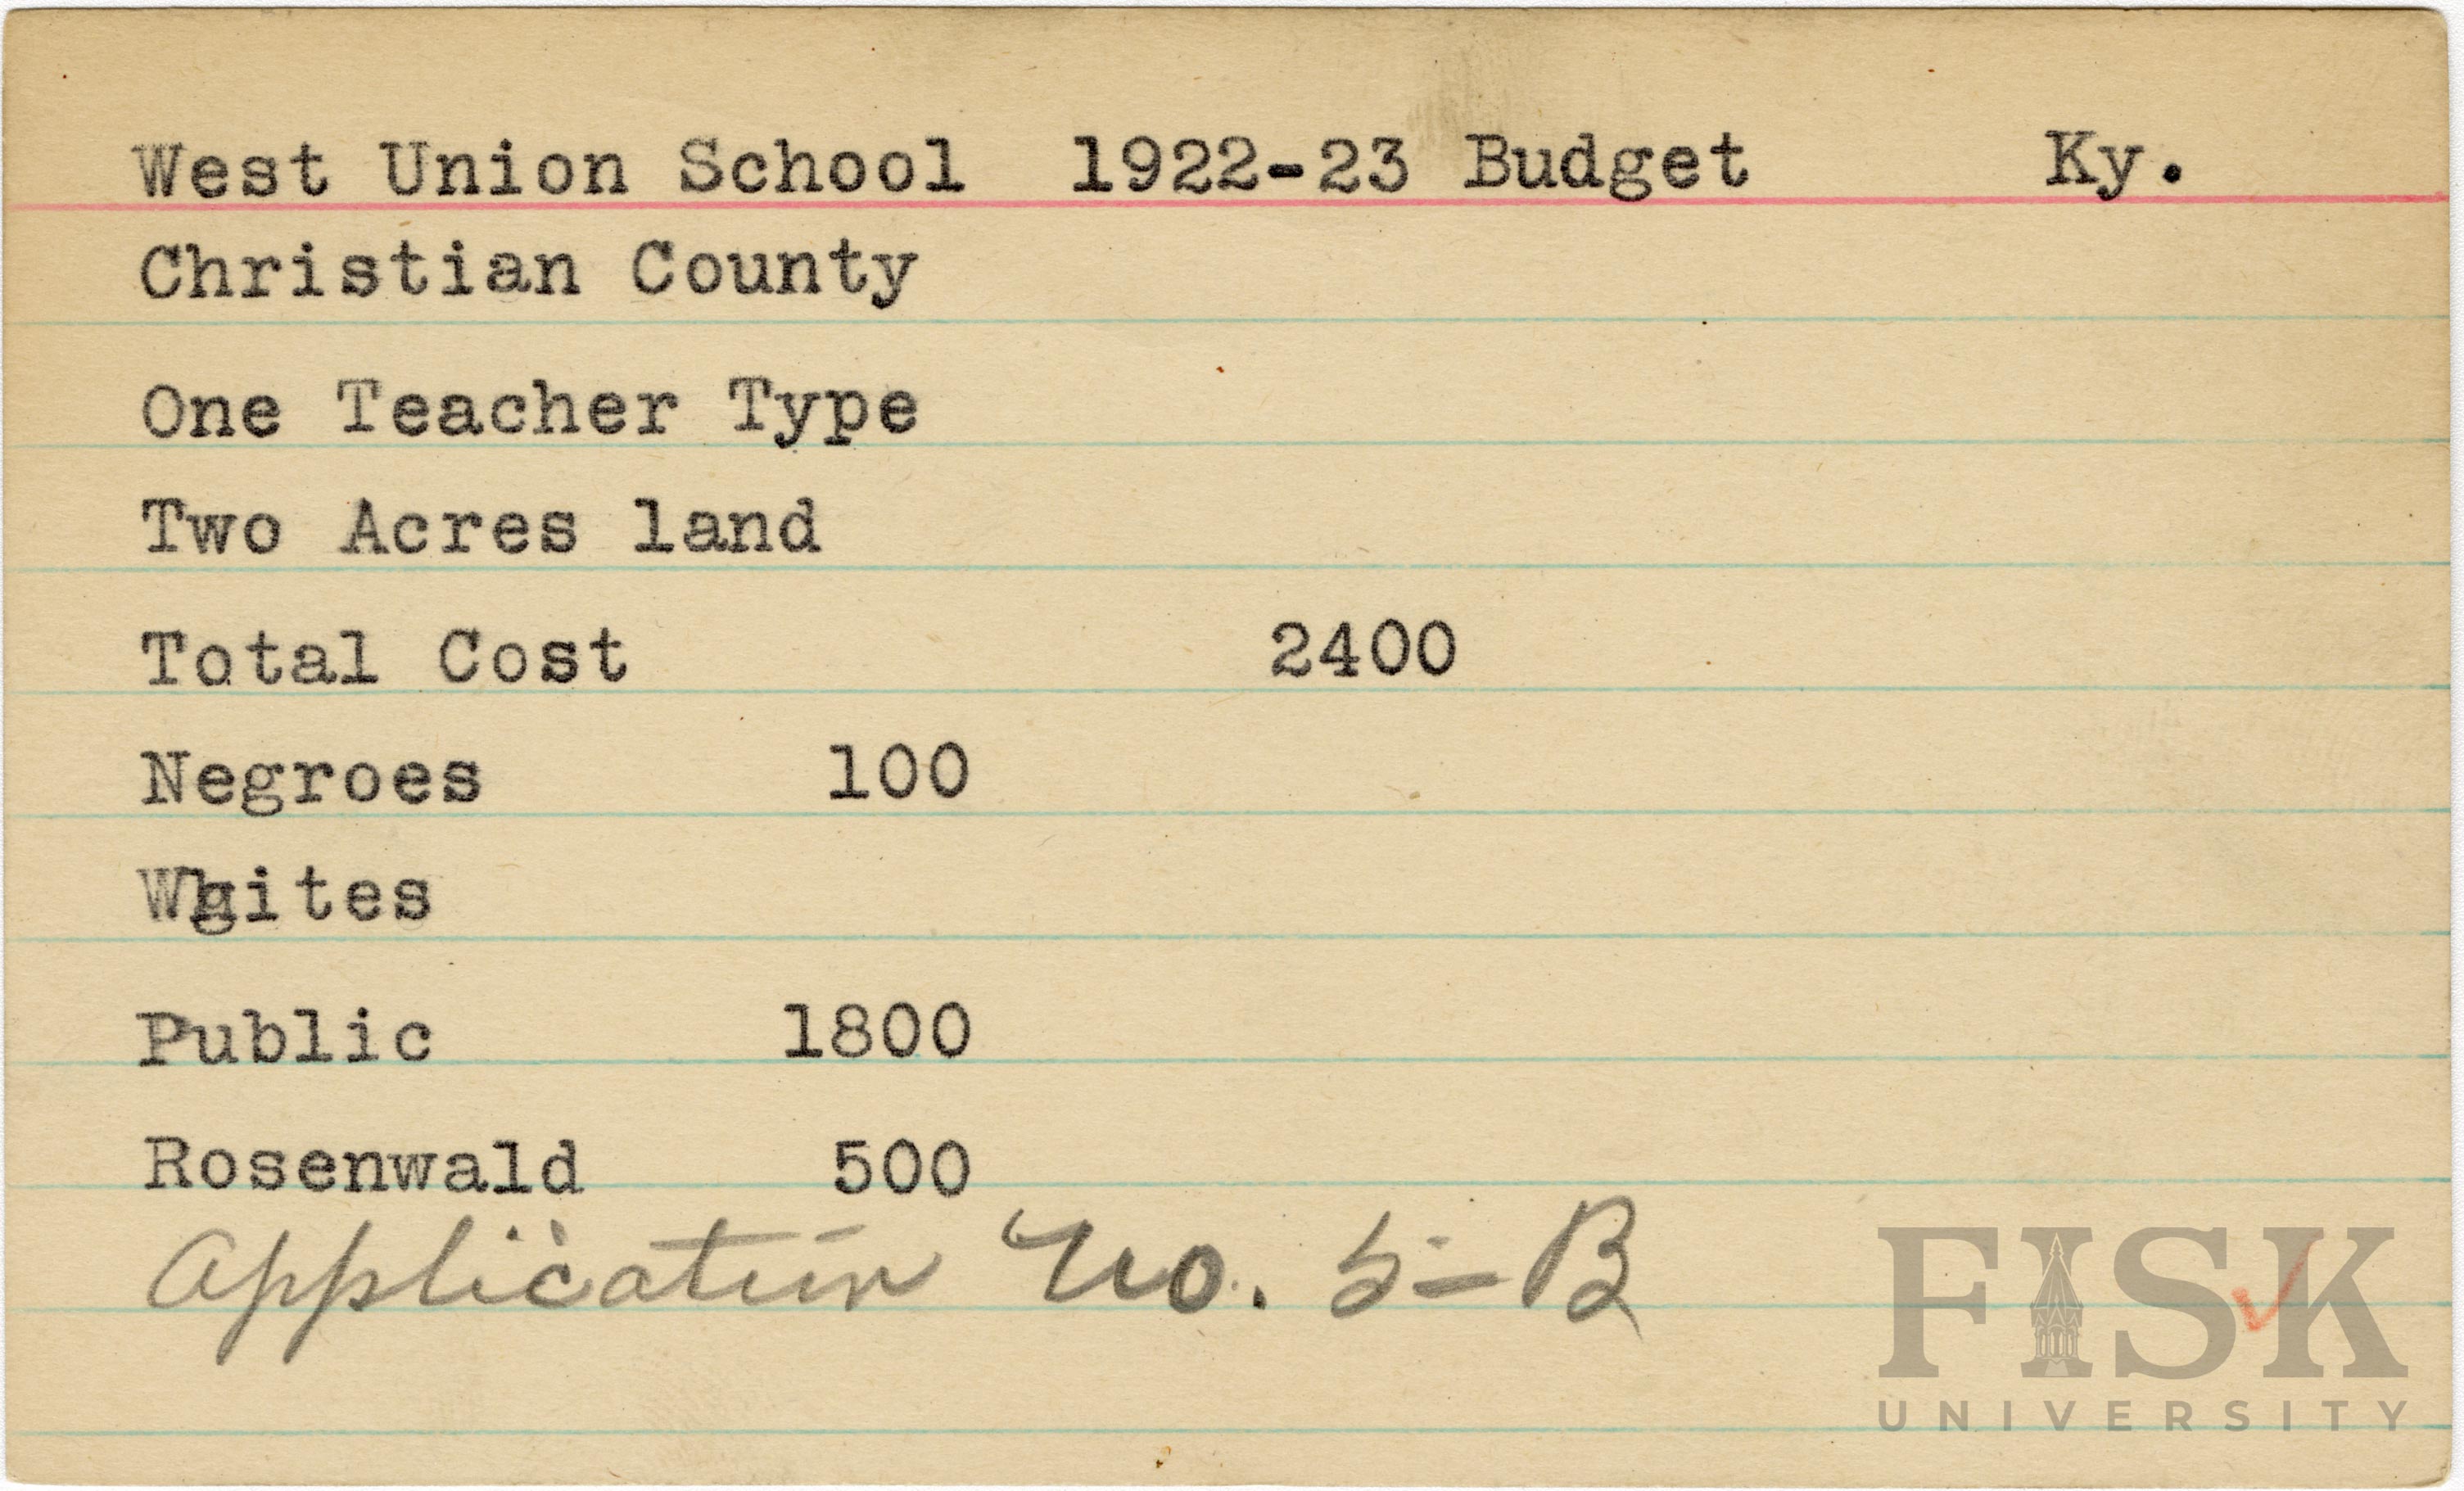 West Union School 1922-23 Budget Ky.
Christian County
One Teacher Type
Two Acres land
Total Cost 2400
Negroes 100
Whites
Public 1800
Rosenwald 500
Application No. 5-B
FISK
UNIVERSITY